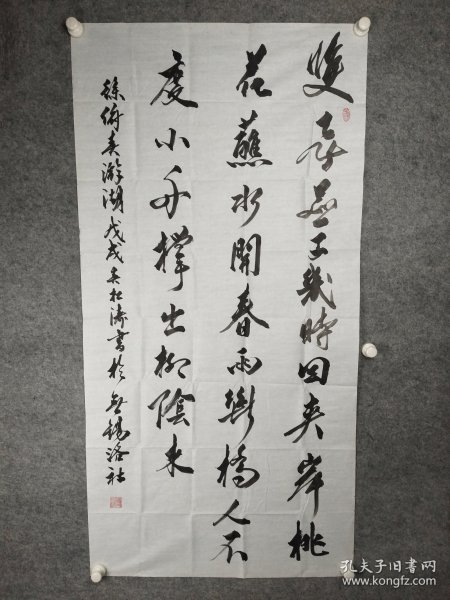 雙飛燕子幾時回夾岸桃
花蘸水開春雨斷橋人不
度小舟撐出柳陰来
徐俯春游湖戊戌吴松涛書於無錫洛社
孔夫子旧书网
www.kongfz.com